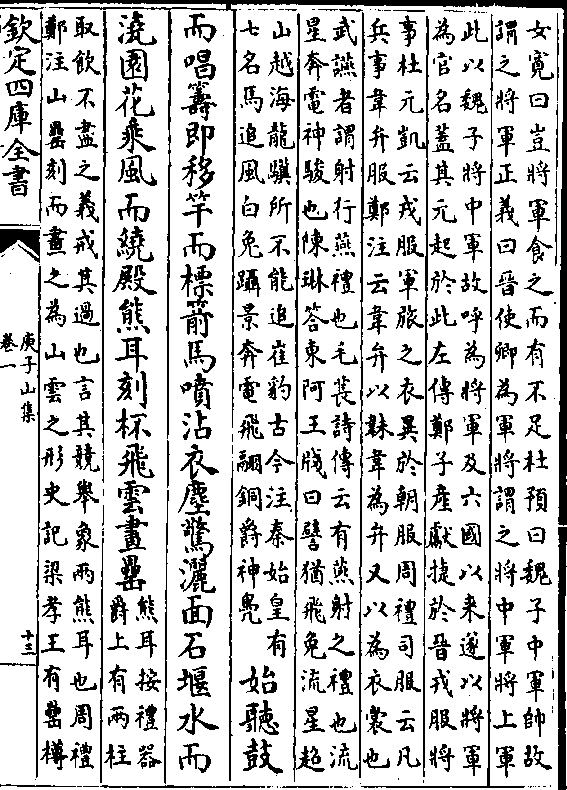 女寬曰豈將軍食之而有不足杜預曰魏子中軍帥故
謂之將軍正義曰晉使卿為軍將謂之將中軍將上軍
此以魏子將中軍故呼為將軍及六國以来遂以將軍
為官名蓋其元起於此左傳鄭子產獻捷於晉戎服將
事杜元凱云戎服軍旅之衣異於朝服周禮司服云凡
兵事韋弁服鄭注云韋弁以韎韋為弁又以為衣裳也
武讌者謂射行燕禮也毛萇詩傳云有燕射之禮也流
星奔電神駿也陳琳答東阿王牋曰譬猶飛兔流星超
山越海龍驥所不能追崔豹古今注秦始皇有
七名馬追風白兔躡景奔電飛翮銅爵神鳧
始聽鼓
而唱籌即移竿而標箭馬噴沾衣塵驚灑面石堰水而
澆園花乘風而繞殿熊耳刻杯飛雲畫罍
熊耳按禮器
爵上有兩柱
取飲不盡之義戒其過也言其競舉象兩熊耳也周禮
鄭注山罍刻而畫之為山雲之形史記梁孝王有罍樽
欽定四庫全書
庾子山集
卷一
十三